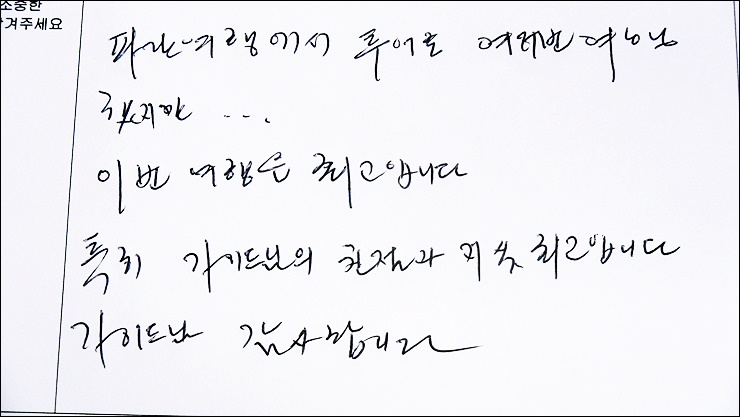 소중한
겨주세요
파란여행에서 투어로 여러번 여행
했지만 ...
이번 여행은 최고입니다
특히 가이드님의 친절과 지식 최고입니다
가이드님 감사합니다